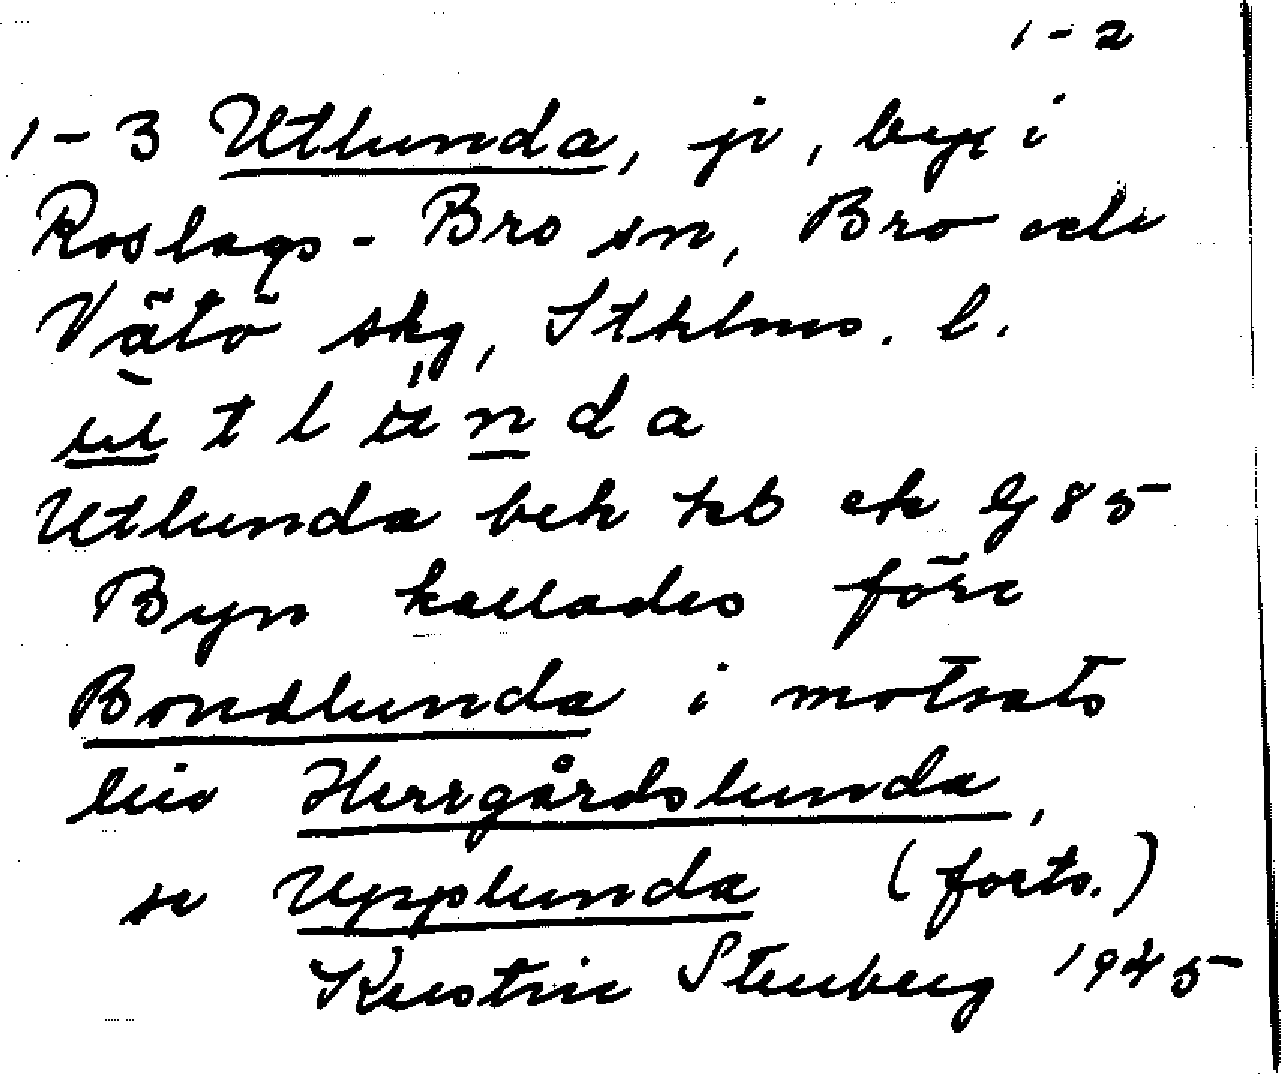 1-2
1-3 Utlunda, jr, byx i
Roslags-Bro sn, Bro och
Vätö skg, Sthlms. l.
utlunda
Utlunda bek kb ek Gg 85
Byn kallades före
Bondlunda i motsats
till Herrgårdslunda,
se Upplunda (forts.)
Kerstin Stenberg 1945